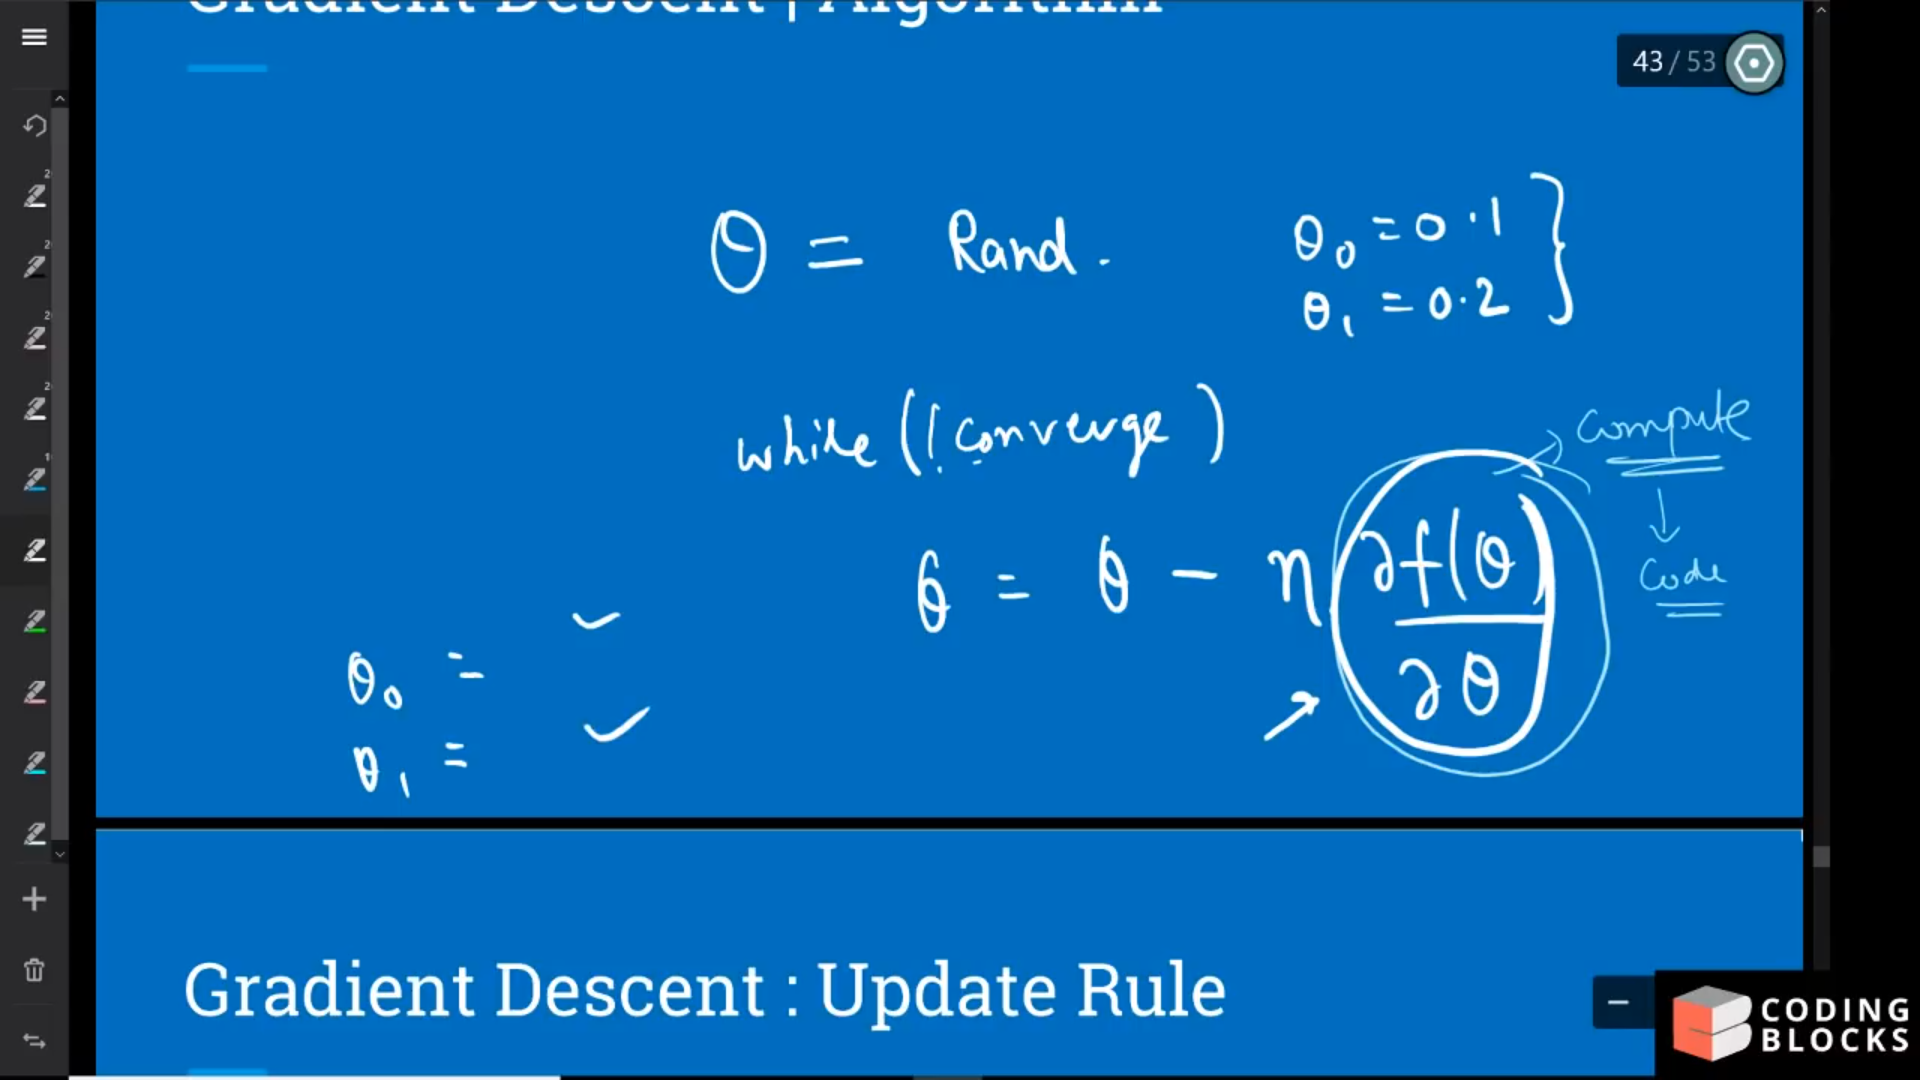 Gradient Descent | Algorithm
43 / 53
θ = Rand.
θ₀ = 0.1
θ₁ = 0.2
while (! Converge)
Compute
θ = θ - η ∂f(θ)
∂θ
Code
θ₀ =
θ₁ =
Gradient Descent : Update Rule
CODING
BLOCKS